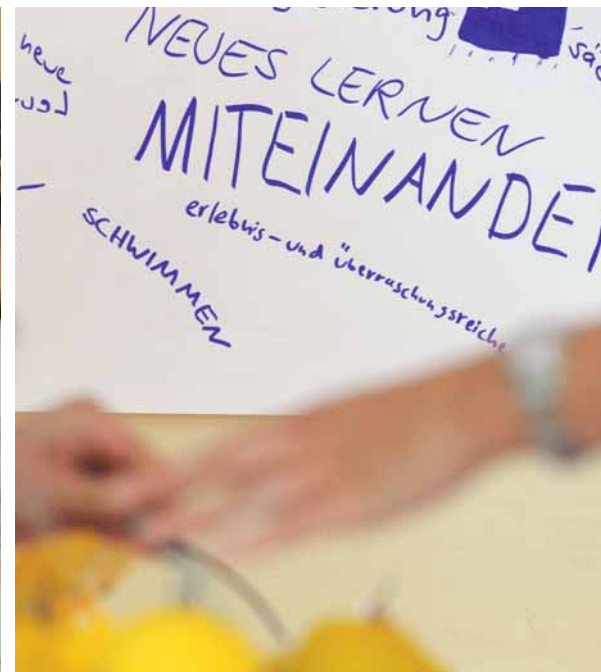 neue
NEUES LERNEN
MITEINANDE
erlebnis- und überraschungsreiche
SCHWIMMEN